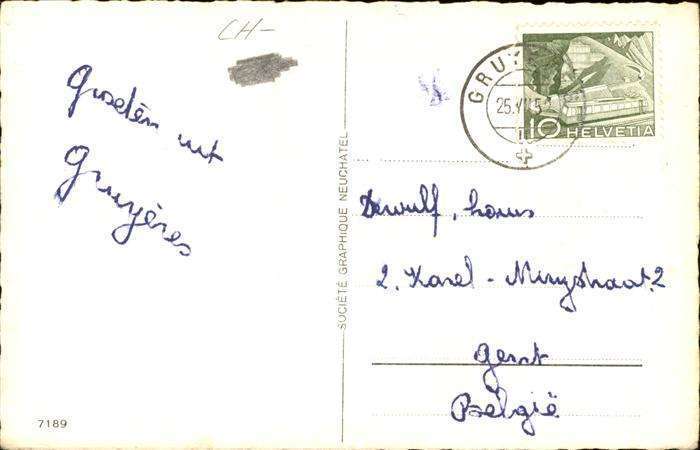 CH-
Groeten uit
Gruyères
7189
SOCIÉTÉ GRAPHIQUE NEUCHATEL
GRUY
25.V
10 HELVETIA
Dewulf, Louis
2. Karel - Mirystraat. 2
Gent
België